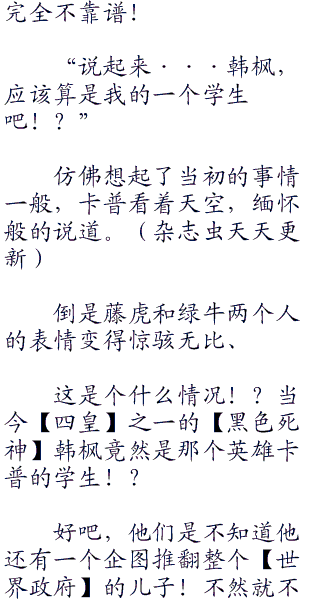 完全不靠谱！
“说起来···韩枫，
应该算是我的一个学生
吧！？”
仿佛想起了当初的事情
一般，卡普看着天空，缅怀
般的说道。（杂志虫天天更
新）
倒是藤虎和绿牛两个人
的表情变得惊骇无比、
这是个什么情况！？当
今【四皇】之一的【黑色死
神】韩枫竟然是那个英雄卡
普的学生！？
好吧，他们是不知道他
还有一个企图推翻整个【世
界政府】的儿子！不然就不